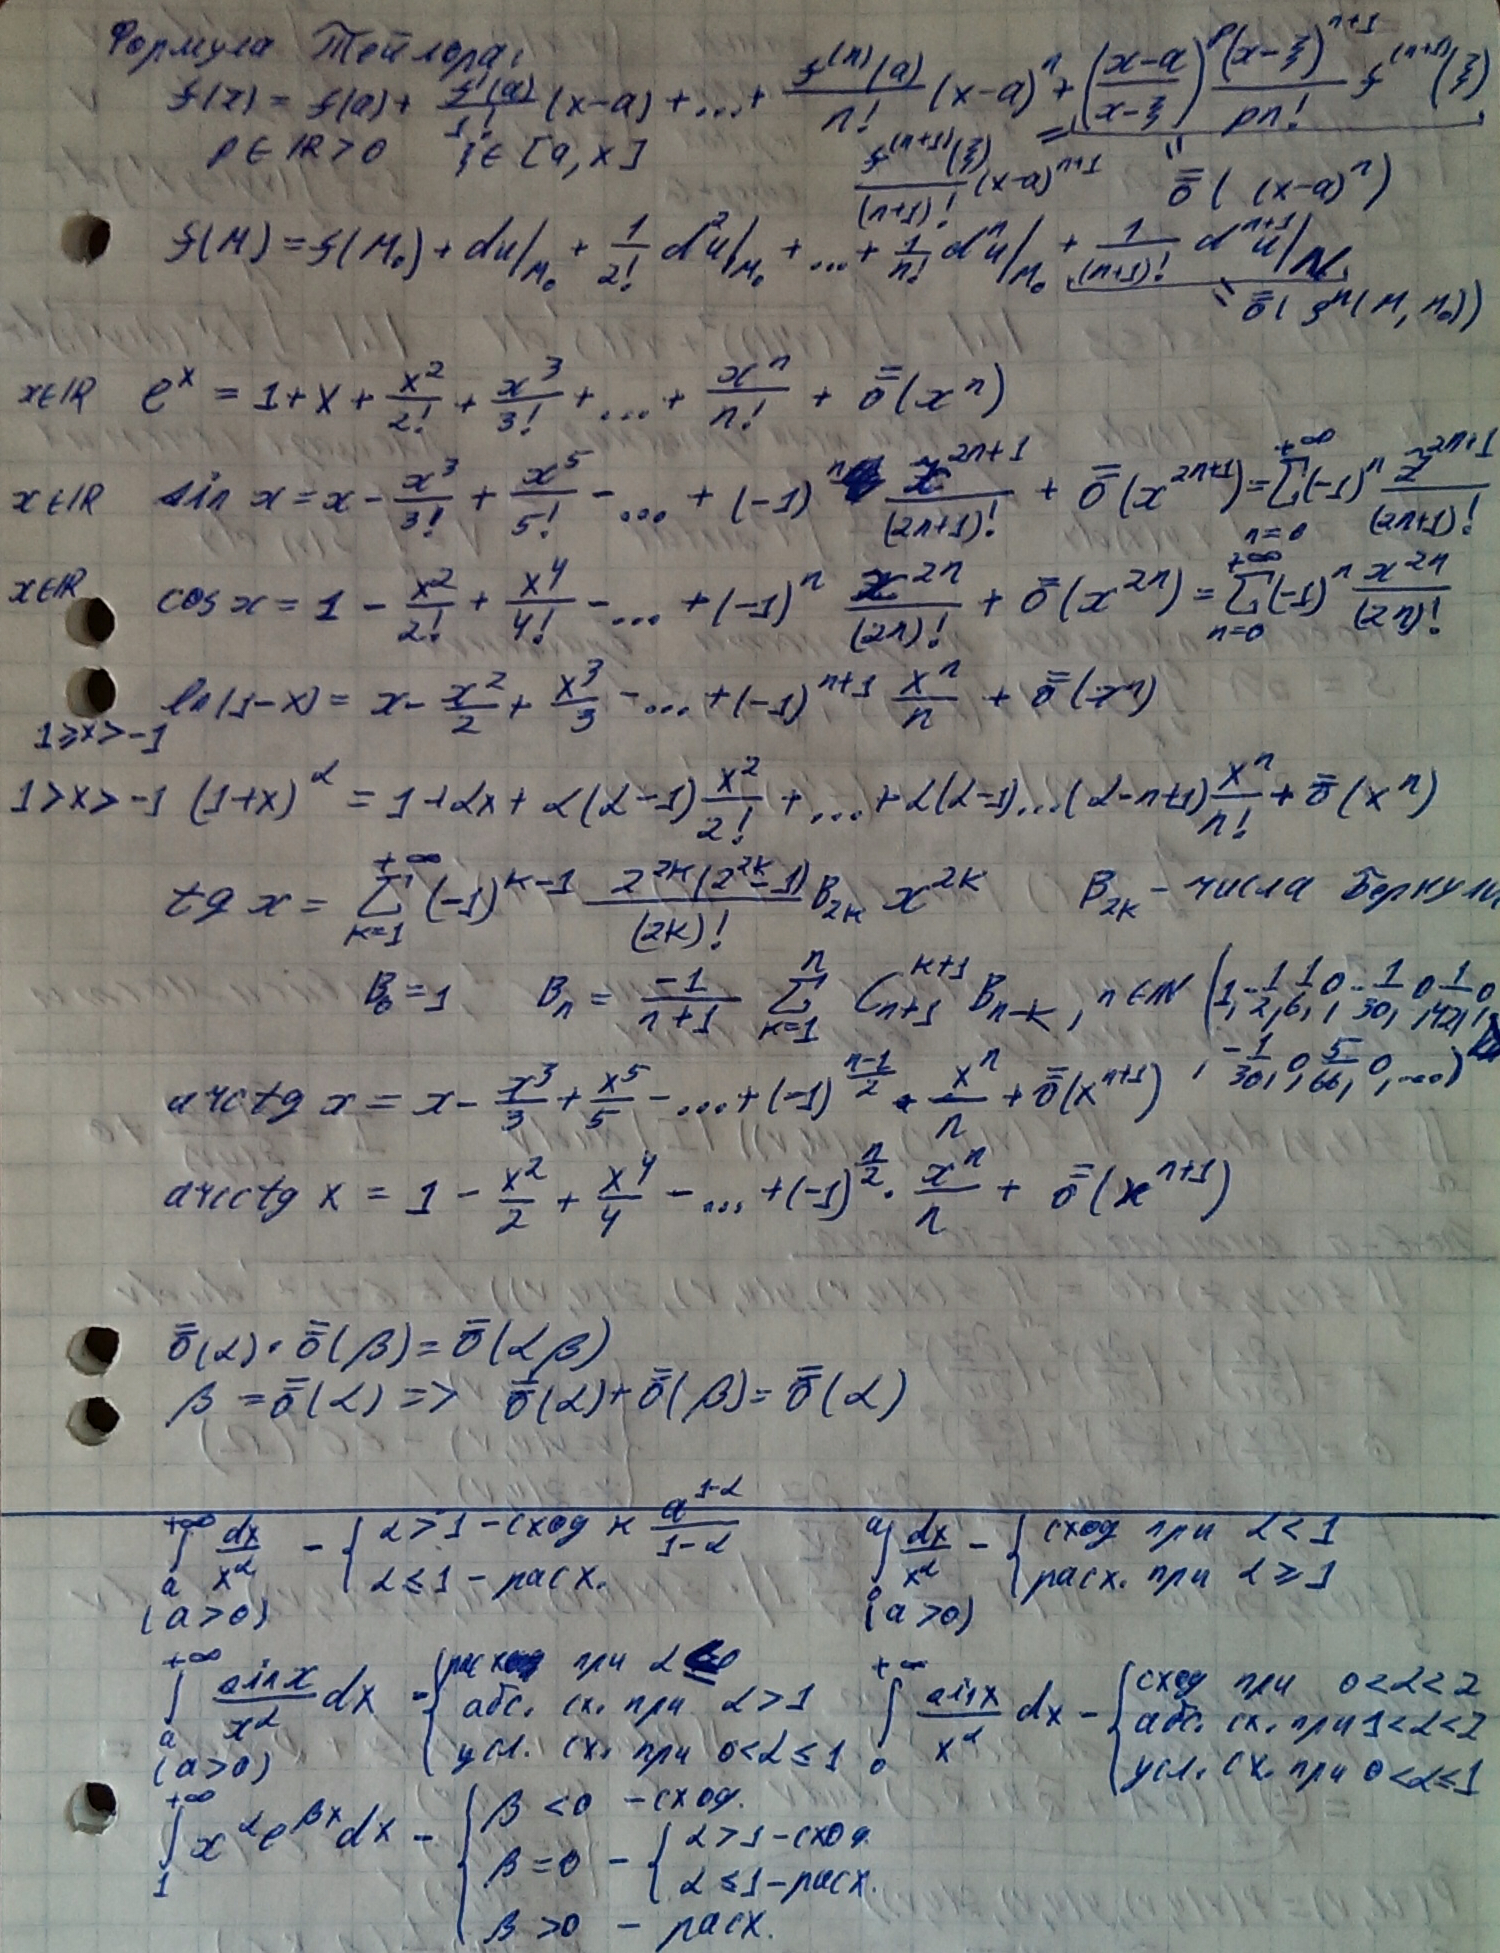 Формула Тейлора:
f(x) = f(a) + f'(a)/1! (x-a) + ... + f^(n)(a)/n! (x-a)^n + ((x-a)/(x-ξ))^p (x-ξ)^(n+1)/(pn!) f^(n+1)(ξ)
p ∈ ℝ > 0 ξ ∈ [a, x] = f^(n+1)(ξ)/(n+1)! (x-a)^(n+1) = o̿((x-a)^n)
f(M) = f(M₀) + du|_M₀ + 1/2! d²u|_M₀ + ... + 1/n! dⁿu|_M₀ + 1/(n+1)! d^(n+1)u|_N
= o̿(ρⁿ(M, M₀))
x∈ℝ e^x = 1 + x + x²/2! + x³/3! + ... + xⁿ/n! + o̿(xⁿ)
x∈ℝ sin x = x - x³/3! + x⁵/5! - ... + (-1)^n x^(2n+1)/(2n+1)! + o̿(x^(2n+1)) = Σ_(n=0)^(+∞) (-1)^n x^(2n+1)/(2n+1)!
x∈ℝ cos x = 1 - x²/2! + x⁴/4! - ... + (-1)^n x^(2n)/(2n)! + o̿(x^(2n)) = Σ_(n=0)^(+∞) (-1)^n x^(2n)/(2n)!
1≥x>-1 ln(1-x) = x - x²/2 + x³/3 - ... + (-1)^(n+1) xⁿ/n + o̿(xⁿ)
1>x>-1 (1+x)^α = 1 + αx + α(α-1) x²/2! + ... + α(α-1)...(α-n+1) xⁿ/n! + o̿(xⁿ)
tg x = Σ_(k=1)^(+∞) (-1)^(k-1) 2^(2k)(2^(2k)-1)/(2k)! B_2k x^(2k) B_2k - числа Бернули
B₀ = 1 B_n = -1/(n+1) Σ_(k=1)^n C_(n+1)^(k+1) B_(n-k), n∈ℕ (1, -1/2, 1/6, 0, -1/30, 0, 1/42, 0,
, -1/30, 0, 5/66, 0, ...)
arctg x = x - x³/3 + x⁵/5 - ... + (-1)^((n-1)/2) · xⁿ/n + o̿(x^(n+1))
arcctg x = 1 - x²/2 + x⁴/4 - ... + (-1)^(n/2) · xⁿ/n + o̿(x^(n+1))
o̿(α) · o̿(β) = o̿(αβ)
β = o̿(α) => o̿(α) + o̿(β) = o̿(α)
∫_a^(+∞) dx/x^α - { α > 1 - сход к a^(1-α)/(1-α)
α ≤ 1 - расх.
(a > 0)
∫_0^a dx/x^α - { сход при α < 1
расх. при α ≥ 1
(a > 0)
∫_a^(+∞) sin x/x^α dx - { расход при α ≤ 0
абс. сх. при α > 1
усл. сх. при 0 < α ≤ 1
(a > 0)
∫_0^(+∞) sin x/x^α dx - { сход при 0 < α < 2
абс. сх. при 1 < α < 2
усл. сх. при 0 < α ≤ 1
∫_1^(+∞) x^α e^(βx) dx - { β < 0 - сход.
β = 0 - { α > 1 - сход.
α ≤ 1 - расх.
β > 0 - расх.